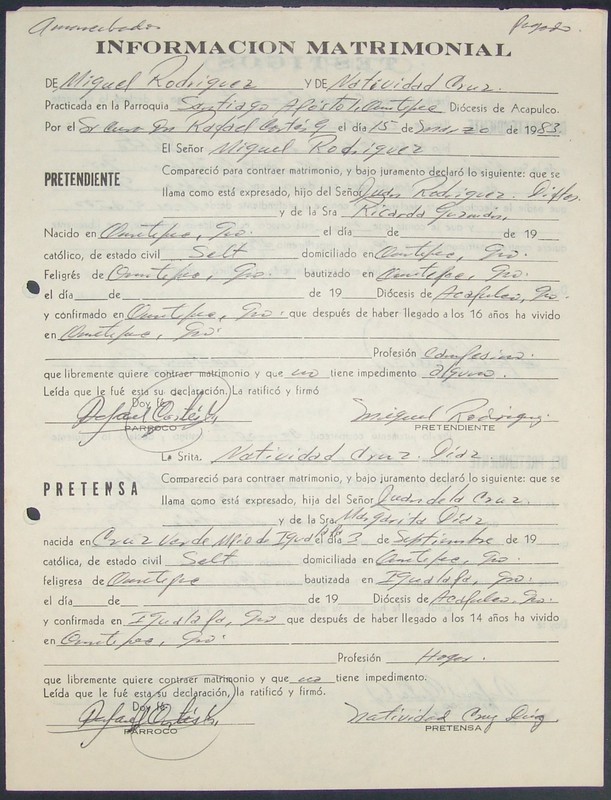 Amancebados Pagado.
INFORMACION MATRIMONIAL
DE Miguel Rodriguez Y DE Natividad Cruz.
Practicada en la Parroquia Santiago Apóstol, Ometepec Diócesis de Acapulco.
Por el Sr Cura Dn Rafael Cortés G el día 15 de marzo de 1983.
El Señor Miguel Rodriguez
PRETENDIENTE
Compareció para contraer matrimonio, y bajo juramento declaró lo siguiente: que se
llama como está expresado, hijo del Señor Juan Rodriguez
y de la Sra Ricarda Guzmán,
Nacido en Ometepec, Gro. el día de de 19
católico, de estado civil Solt domiciliado en Ometepec, Gro.
Feligrés de Ometepec, Gro. bautizado en Ometepec, Gro.
el día de de 19 Diócesis de Acapulco, Gro.
y confirmado en Ometepec, Gro. que después de haber llegado a los 16 años ha vivido
en Ometepec, Gro.
Profesión campesino.
que libremente quiere contraer matrimonio y que no tiene impedimento alguno.
Leída que le fué esta su declaración. La ratificó y firmó
Doy fé
Rafael Cortés G Miguel Rodriguez
PARROCO PRETENDIENTE
La Srita. Natividad Cruz Díaz
PRETENSA
Compareció para contraer matrimonio, y bajo juramento declaró lo siguiente: que se
llama como está expresado, hija del Señor Juan de la Cruz.
y de la Sra. Margarita Díaz
nacida en Cruz Verde Mpio de el día 3 de Septiembre de 19
católica, de estado civil Solt domiciliada en Ometepec, Gro.
feligresa de Ometepec bautizada en Igualapa, Gro.
el día de de 19 Diócesis de Acapulco, Gro.
y confirmada en Igualapa, Gro que después de haber llegado a los 14 años ha vivido
en Ometepec, Gro.
Profesión Hogar.
que libremente quiere contraer matrimonio y que no tiene impedimento.
Leída que le fué esta su declaración, la ratificó y firmó.
Doy fé
Rafael Cortés G Natividad Cruz Díaz
PARROCO PRETENSA